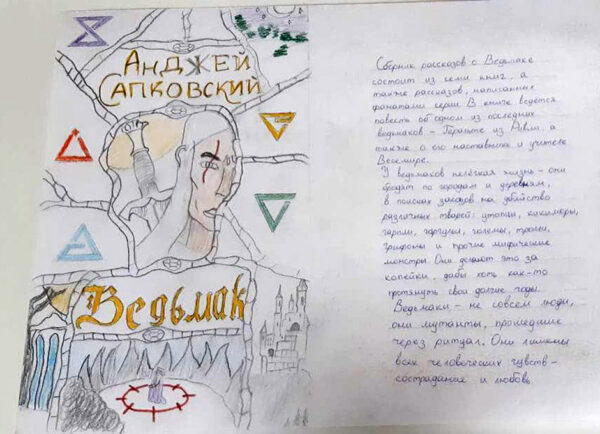 Анджей
Сапковский
Ведьмак
Сборник рассказов о Ведьмаке
состоит из семи книг, а
также рассказов, написанных
фанатами серии. В книге ведется
повесть об одном из последних
ведьмаков - Геральте из Ривии, а
также о его наставнике и учителе
Весемире.
У ведьмаков нелёгкая жизнь - они
бродят по городам и деревням,
в поисках заказов на убийство
различных тварей: утопцы, кикиморы,
гарпии, гаргульи, големы, тролли,
грифоны и прочие мифические
монстры. Они делают это за
копейки, дабы хоть как-то
протянуть свои долгие годы.
Ведьмаки - не совсем люди,
они мутанты, прошедшие
через ритуал. Они лишены
всех человеческих чувств -
сострадание и любовь